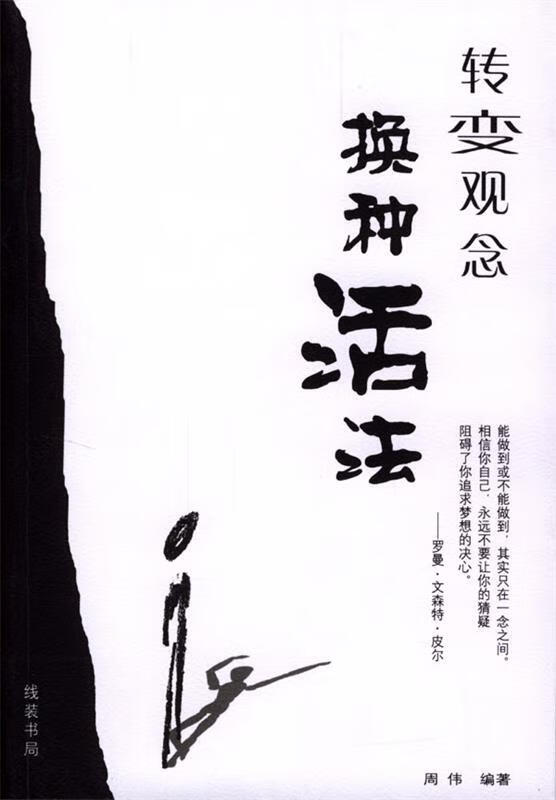 转变观念
换种活法
能做到或不能做到，其实只在一念之间。
相信你自己，永远不要让你的猜疑
阻碍了你追求梦想的决心。
——罗曼·文森特·皮尔
线装书局
周伟 编著